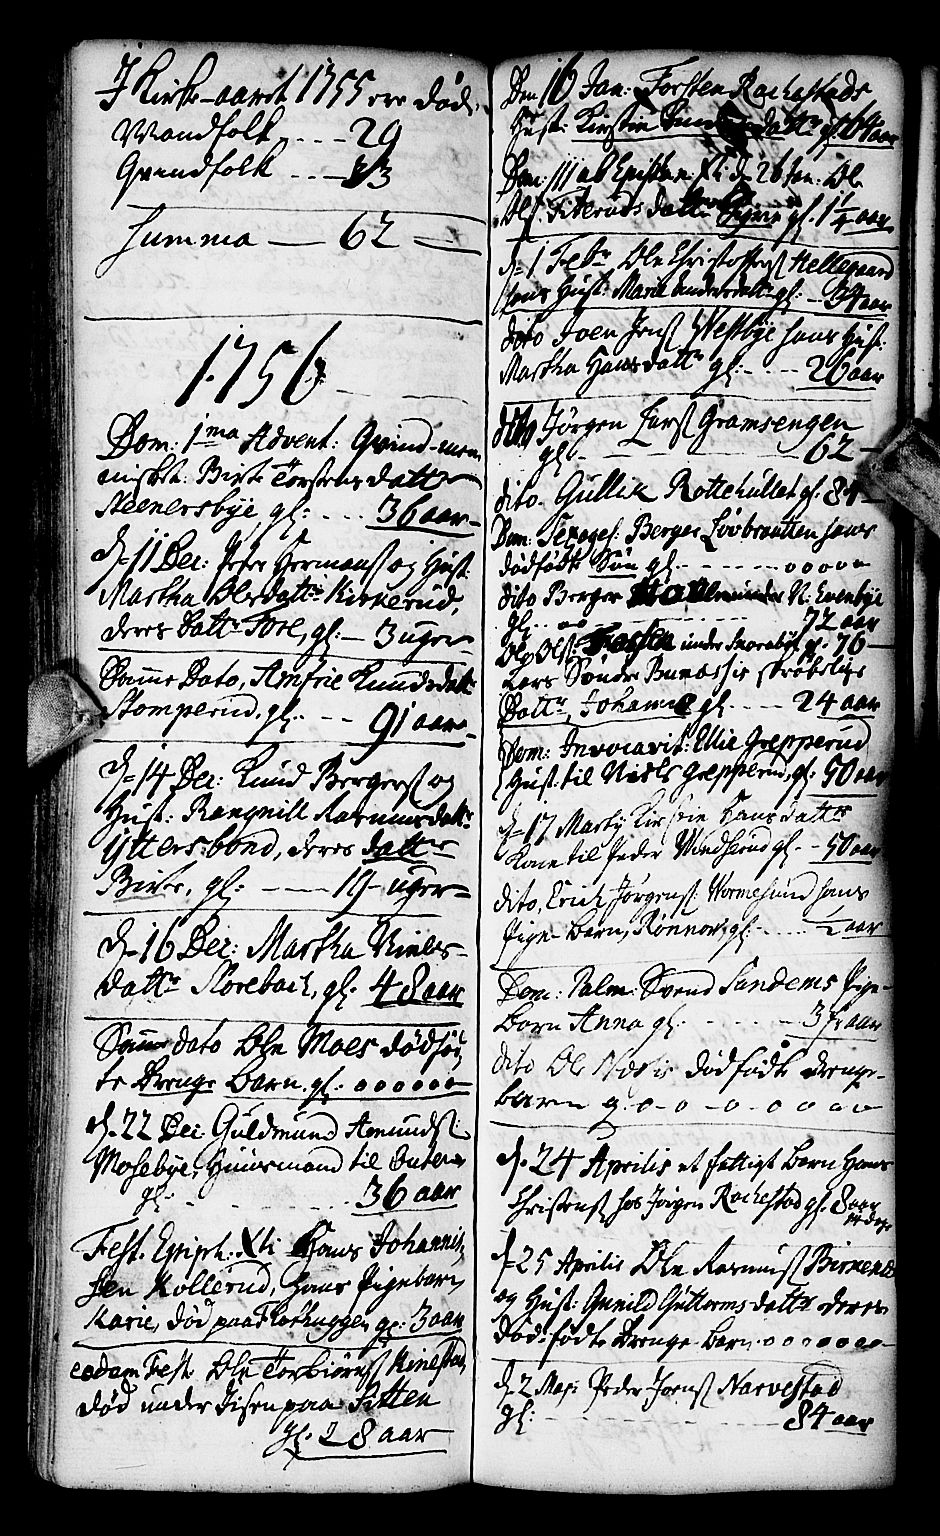 I Kirke-aaret 1755 ere døde,
Mandfolk - - - 29
Qvindfolk - - - 33
Summa — 62 —
1756
Dom: 1ma Advent: Qvind-men
nisket Birte Torstensdattr
Neenersbye gl: - - - 36 aar
d. 11 Dec: Peder Hermansø og Hust:
Martha Olesdattr Kirkerud,
deres dattr Tore, gl: - 3 uger
Samme Dato, Amfrie Knudsdattr
Stomperud, gl: - - 91 aar
d. 14 Dec: Knud Bergersø og
Hust: Rangnill Rasmusdattr
Ytters-bond, deres dattr
Birte, gl: - - - 19 - uger
d. 16 Dec: Martha Niels-
dattr Korebach, gl: 48 aar
Samme dato Ole Moes dødfød
te Drenge barn. gl: o o o o o o
d. 22 Dec: Guldmund Amundsø:
Mosebye, Huusmand til
gl: - - - 36 aar
Fest. Epiph: Xti Hans Johannis
sen Kollerud, hans Pigebarn,
Karie, død paa gl: 3 aar
eodem Fest. Ole Torbiørnsø Kinestad,
død under Isen paa
gl. 28 aar
Den 16 Jan: Torsten Rachestads
Hust: Kirstin dattr gl. 64 aar
Dom: III ab Epiph: Xti d. 26 Jan. Ole
Ols. Fiteruds dattr gl. 1 1/4 aar
d. 1 Febr Ole Christophersø Hellegaard
hans Hust: Marie Andersdattr gl. - 34 aar
dito Joen Jensø Westbye hans Hust:
Martha Hansdattr gl: - - - 26 aar
dito Jørgen Larsø Gramsengen
gl: - - - 62 -
dito. Gullik Rottehullet gl. 84 -
Dom: Sexages: Berger Løvbraatten hans
dødfødte Søn gl. - - - o o o o o
dito Berger under N: Evenbye
gl. - - - 72 aar
Ole Olsø under Skorebye gl. 76 -
Lars Søndre skrøbelige
Dattr, Johanne gl: - - - 24 aar
Dom: Invocavit: Ellie Grepperud
Hust: til Niels Grepperud, gl. 50 aar
d. 17 Marty Kirstie Hansdattr
Kone til Peder gl. - 50 aar
dito, Erich Jørgensø: Wormesund hans
Pige-Barn, Rønnov, gl: - - - 1/2 aar
Dom: Palm: Svend Sandems Pige-
Barn Anna gl: - - - 3 aar
dito Ole dødfødte drenge-
barn g. o - o - o - o o o o
d. 24 Aprilis et fattigt barn Hans
Christensø hos Jørgen Rachestad gl. 8 aar
d. 25 Aprilis Ole Rasmusø
og Hust: Gunild Guttormsdattr deres
død-fødte Drenge-Barn - o o o o o o
d. 2 Maji Peder Joensø Narvestad
gl: - - - 84 aar